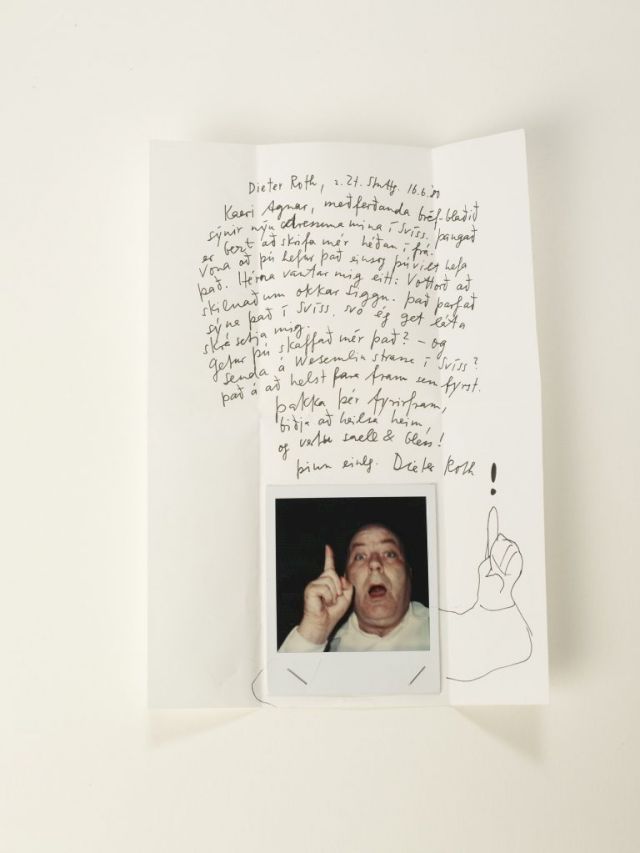 Dieter Roth, z. Zt. Stuttg. 16.6.
Kæri Agnar, meðferðanda bréf-blaðið
sýnir nýu adressuna mína í Svíss. þangað
er bezt að skrifa mér héðan í frá.
Vona að þú hefur það einsog þú vilt hafa
það. Hérna vantar mig eitt: Vottorð að
skilnaðum okkar Siggu. það þarf að
sýna það í Svíss, svo ég get láta
skrásetja mig.
Getur þú skaffað mér það? – og
senda á Wesemlin strasse í Svíss?
það á að helst fara fram sem fyrst.
þakka þér fyrirfram,
biðja að heilsa heim,
og vertu sæll & bless!
þinn einlg. Dieter Roth
!